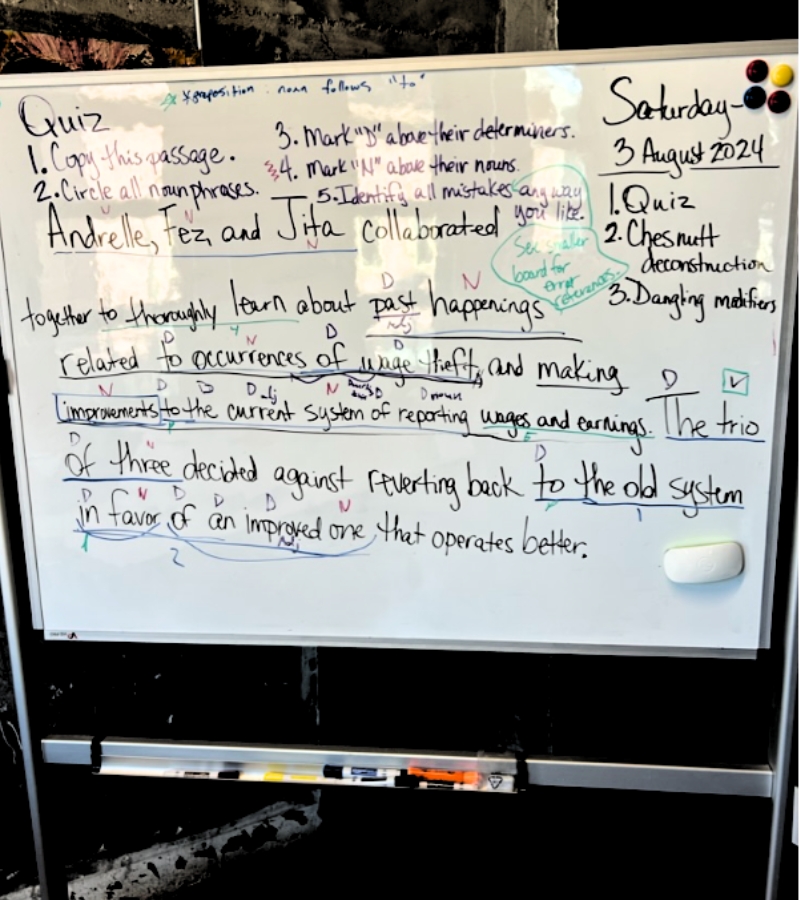 * preposition: noun follows "to"
Quiz
1. Copy this passage.
2. Circle all noun phrases.
3. Mark "D" above their determiners.
4. Mark "N" above their nouns.
5. Identify all mistakes any way
you like.
See smaller
board for
error
references.
Saturday-
3 August 2024
1. Quiz
2. Chesnutt
deconstruction
3. Dangling modifiers
N
N
Andrelle, Fez, and Jita collaborated
N
D N
together to thoroughly learn about past happenings
Adj
D N D D
related to occurrences of wage theft, and making
N D D D adj N D D noun D
improvements to the current system of reporting wages and earnings. The trio
D N D
of three decided against reverting back to the old system
D N D D D N
in favor of an improved one that operates better.
Adj
1 2 1